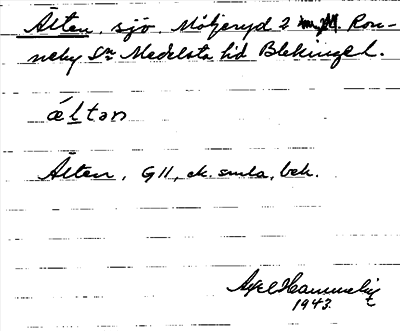 Älten, sjö, Möljeryd 2 Ron-
neby Sn Medelsta hd Blekinge l.
æ̂ltən
Älten, GII, ek. smla, bek.
Axel Hammelig
1943.